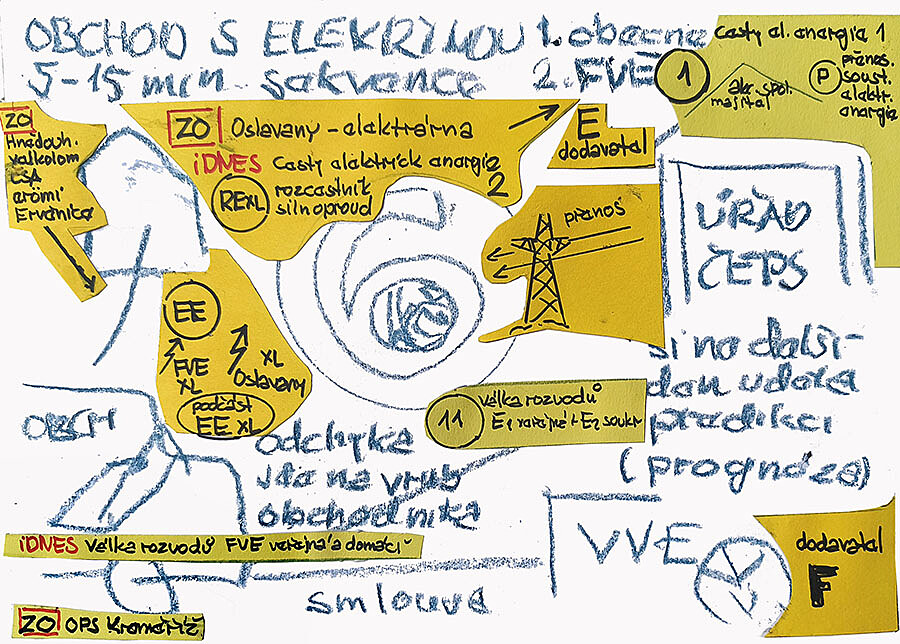 OBCHOD S ELEKŘINOU 1. obecne
5-15 min. sekvence 2. FVE
1
Cesty el. energie 1
akc. spol.
majitel
P
přenos.
soust.
elektr.
energie
ZO
Hnědouh.
velkolom
ČSA
Ervěnice
ZO Oslavany - elektrárna
iDNES Cesty elektrick energie 2
RE XL rozcestník
silnoproud
E
dodavatel
přenos
ÚŘAD
ČEPS
si na další
den udělá
predikci
(prognóza)
EE
FVE
XL
XL
Oslavany
podčást
EE XL
11
Válka rozvodů
E1 veřejné + E2 soukr
OBCH
odchylka
jde na vrub
obchodníka
iDNES Válka rozvodů FVE veřejná a domácí
smlouva
VVE
dodavatel
F
ZO OPS Kroměříž